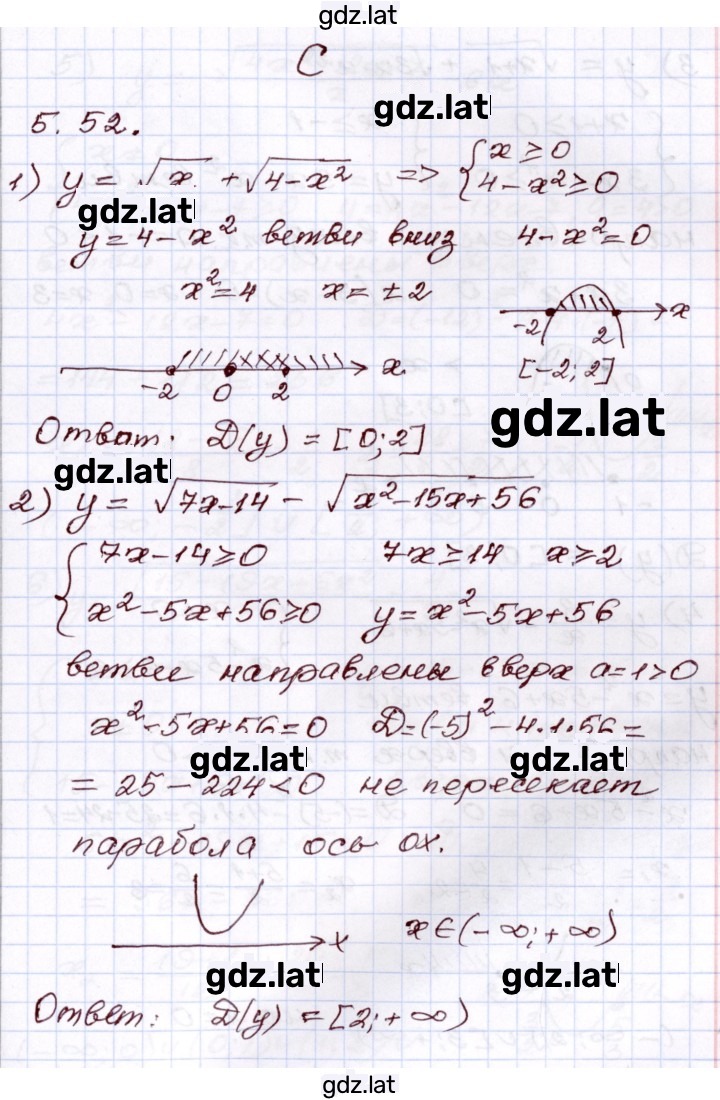 gdz.lat
С
gdz.lat
5.52.
1) y = √x + √4-x² => { x ≥ 0
4-x² ≥ 0
gdz.lat
y = 4-x² ветви вниз 4-x²=0
x²=4 x=±2
x
-2 2
[-2; 2]
x
-2 0 2
gdz.lat
Ответ: D(y) = [0; 2]
gdz.lat
2) y = √7x-14 - √x²-15x+56
{ 7x-14≥0 7x≥14 x≥2
x²-5x+56≥0 y=x²-5x+56
ветви направлены вверх a=1>0
x²-5x+56=0 D=(-5)²-4.1.56=
gdz.lat gdz.lat
= 25-224<0 не пересекает
парабола ось ox.
x x∈(-∞;+∞)
gdz.lat gdz.lat
Ответ: D(y) = [2;+∞)
gdz.lat